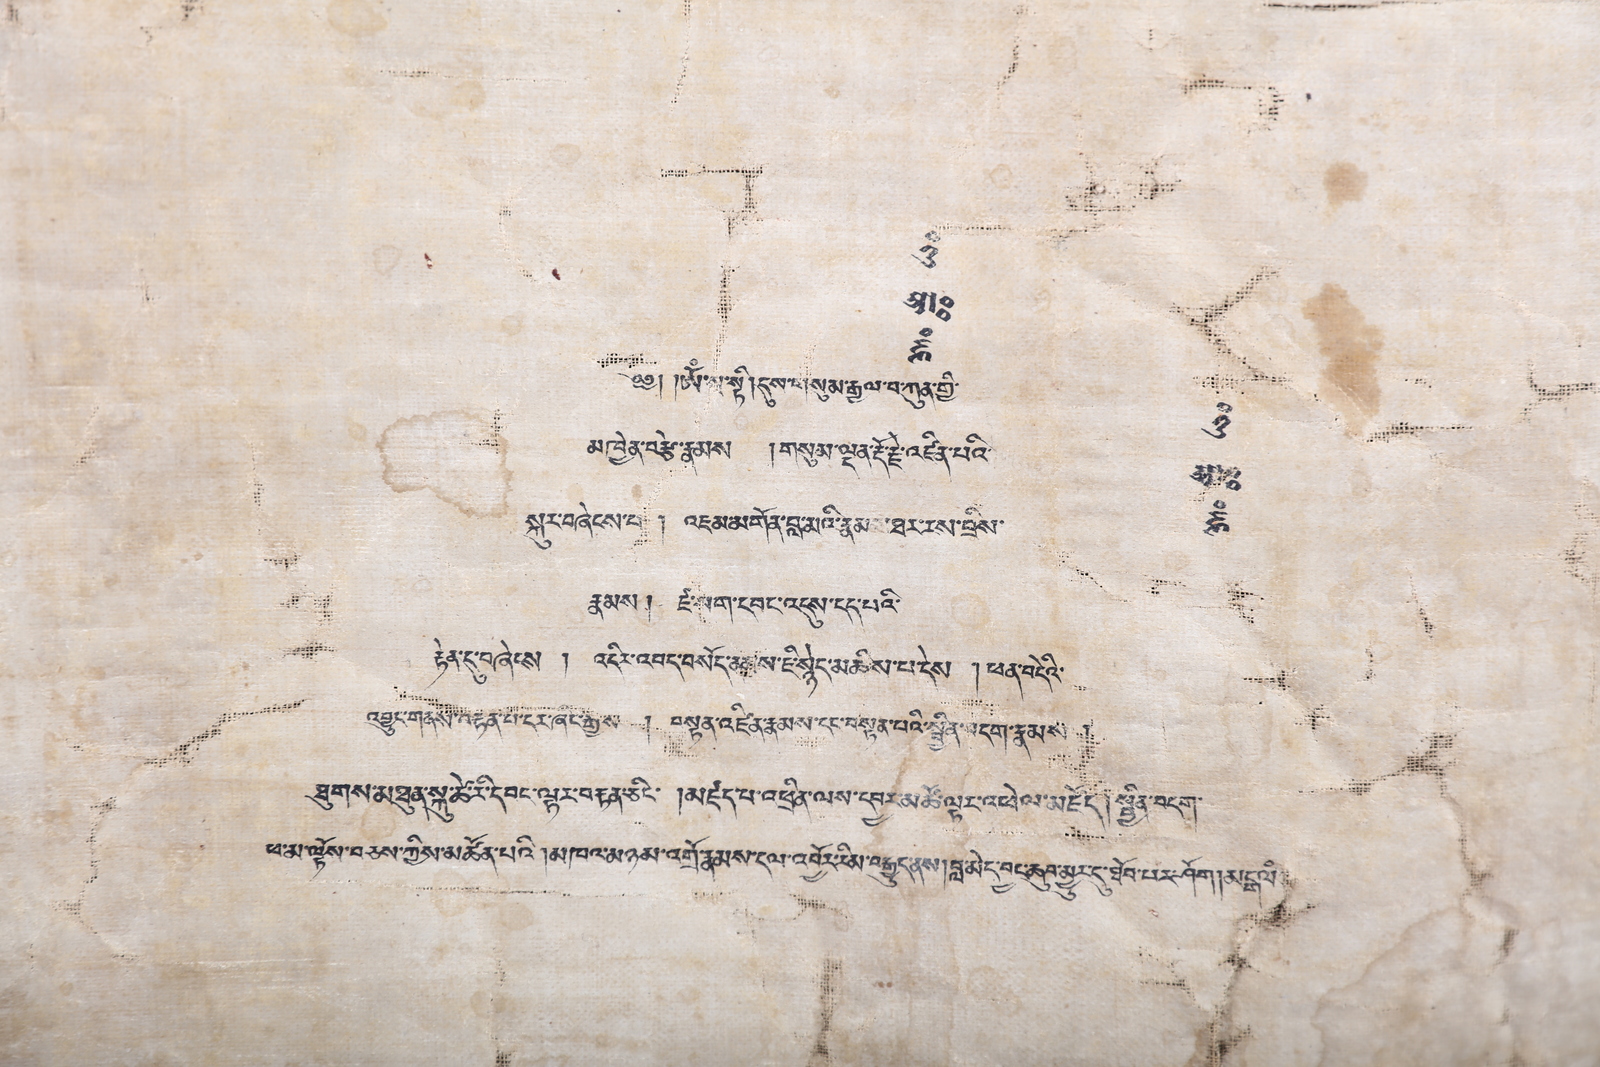 ཨོཾ
ཨཱཿ
ཧཱུྃ
༄༅། །ཨོཾ་ སྟི། དུས་ སུམ་རྒྱལ་བ་ཀུན་གྱི་
མཁྱེན་བརྩེ་རྣམས །གསུམ་ལྡན་རྡོ་རྗེ་འཛིན་པའི་
སྐུར་བཞེངས་པ །འཇམ་མགོན་བླ་མའི་རྣམ ཐར་རས་བྲིས་
རྣམས། ངག་དབང་
རྟེན་དུ་བཞེངས །འདིར་འབད་བསོད་ནམས་ཇི་སྙེད་མཆིས་པ་དེས །ཕན་བདེའི་
འབྱུང་གནས་བསྟན་པ་དར་ཞིང་རྒྱས །བསྟན་འཛིན་རྣམས་དང་བསྟན་པའི་སྦྱིན་བདག་རྣམས །
ཐུགས་མཐུན་སྐུ་ཚེ་རི་དབང་ལྟར་བརྟན་ཅིང་ །མཛད་པ་འཕྲིན་ལས་དབྱར་མཚོ་ལྟར་འཕེལ་ སྦྱིན་བདག་
ཕ་མ་ལྟོས་བཅས་ཀྱིས་མཚོན་པའི །མཁའ་མཉམ་འགྲོ་རྣམས་དལ་འབྱོར་ བླ་མེད་བྱང་ཆུབ་མྱུར་དུ་ཐོབ་པར་ཤོག །མངྒ་ལཾ
ཨོཾ
ཨཱཿ
ཧཱུྃ